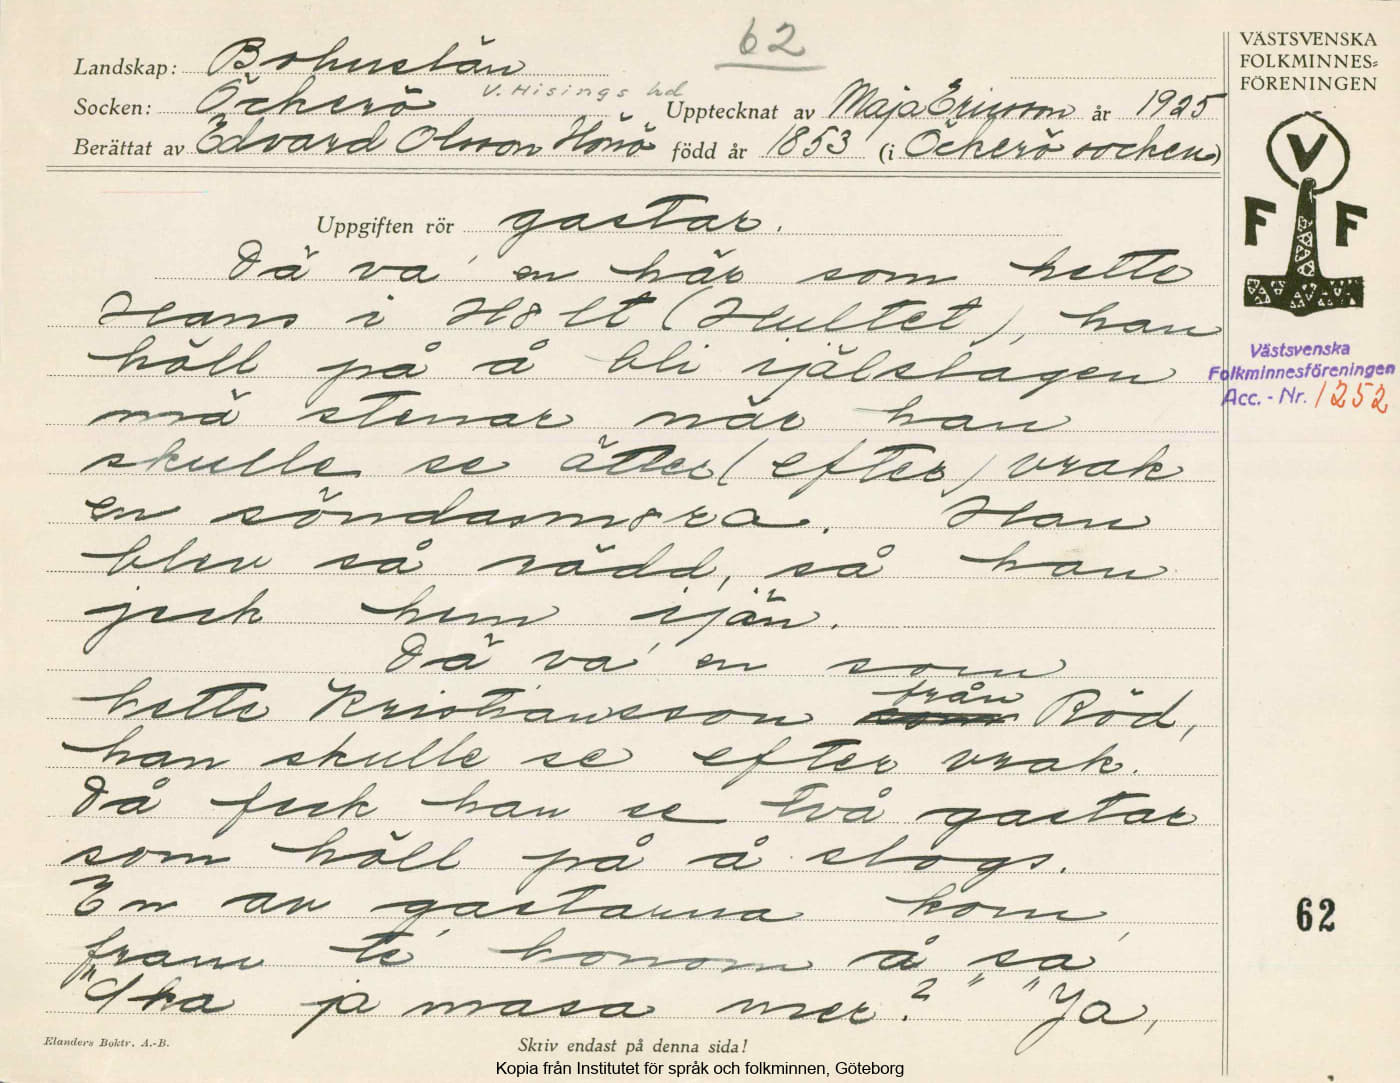 62
Landskap: Bohuslän
Socken: Öckerö V. Hisings hd
Upptecknat av Maja Ericsson år 1925
Berättat av Edvard Olsson Hönö född år 1853 (i Öckerö socken)
VÄSTSVENSKA
FOLKMINNES=
FÖRENINGEN
V
F F
Uppgiften rör gastar.
Dä va' en här som hette
Hans i H8lt (Hultet), han
höll på å bli ijälslagen
mä stenar när han
skulle se ätter (efter) vrak
en söndasm8ra. Han
blev så rädd, så han
jeck hem ijän.
Dä va' en som
hette Kristiansson från Röd,
han skulle se efter vrak.
Då feck han se två gastar
som höll på å slogs.
En av gastarna kom
fram te' honom å sa,
"Ska ja masa mer?" "Ja,
Västsvenska
Folkminnesföreningen
Acc. - Nr. 1252
62
Elanders Boktr. A.-B.
Skriv endast på denna sida!
Kopia från Institutet för språk och folkminnen, Göteborg